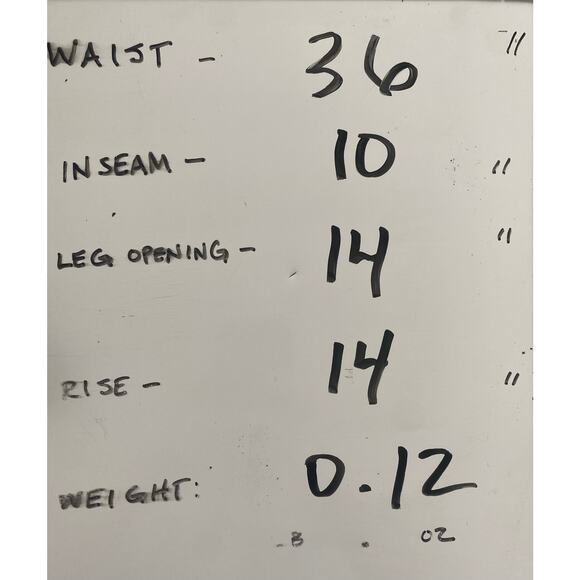 WAIST - 36 "
INSEAM - 10 "
LEG OPENING - 14 "
RISE - 14 "
WEIGHT: 0.12
. oz